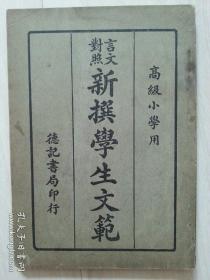 高級小學用
言文對照
新撰學生文範
德記書局印行
孔夫子旧书网